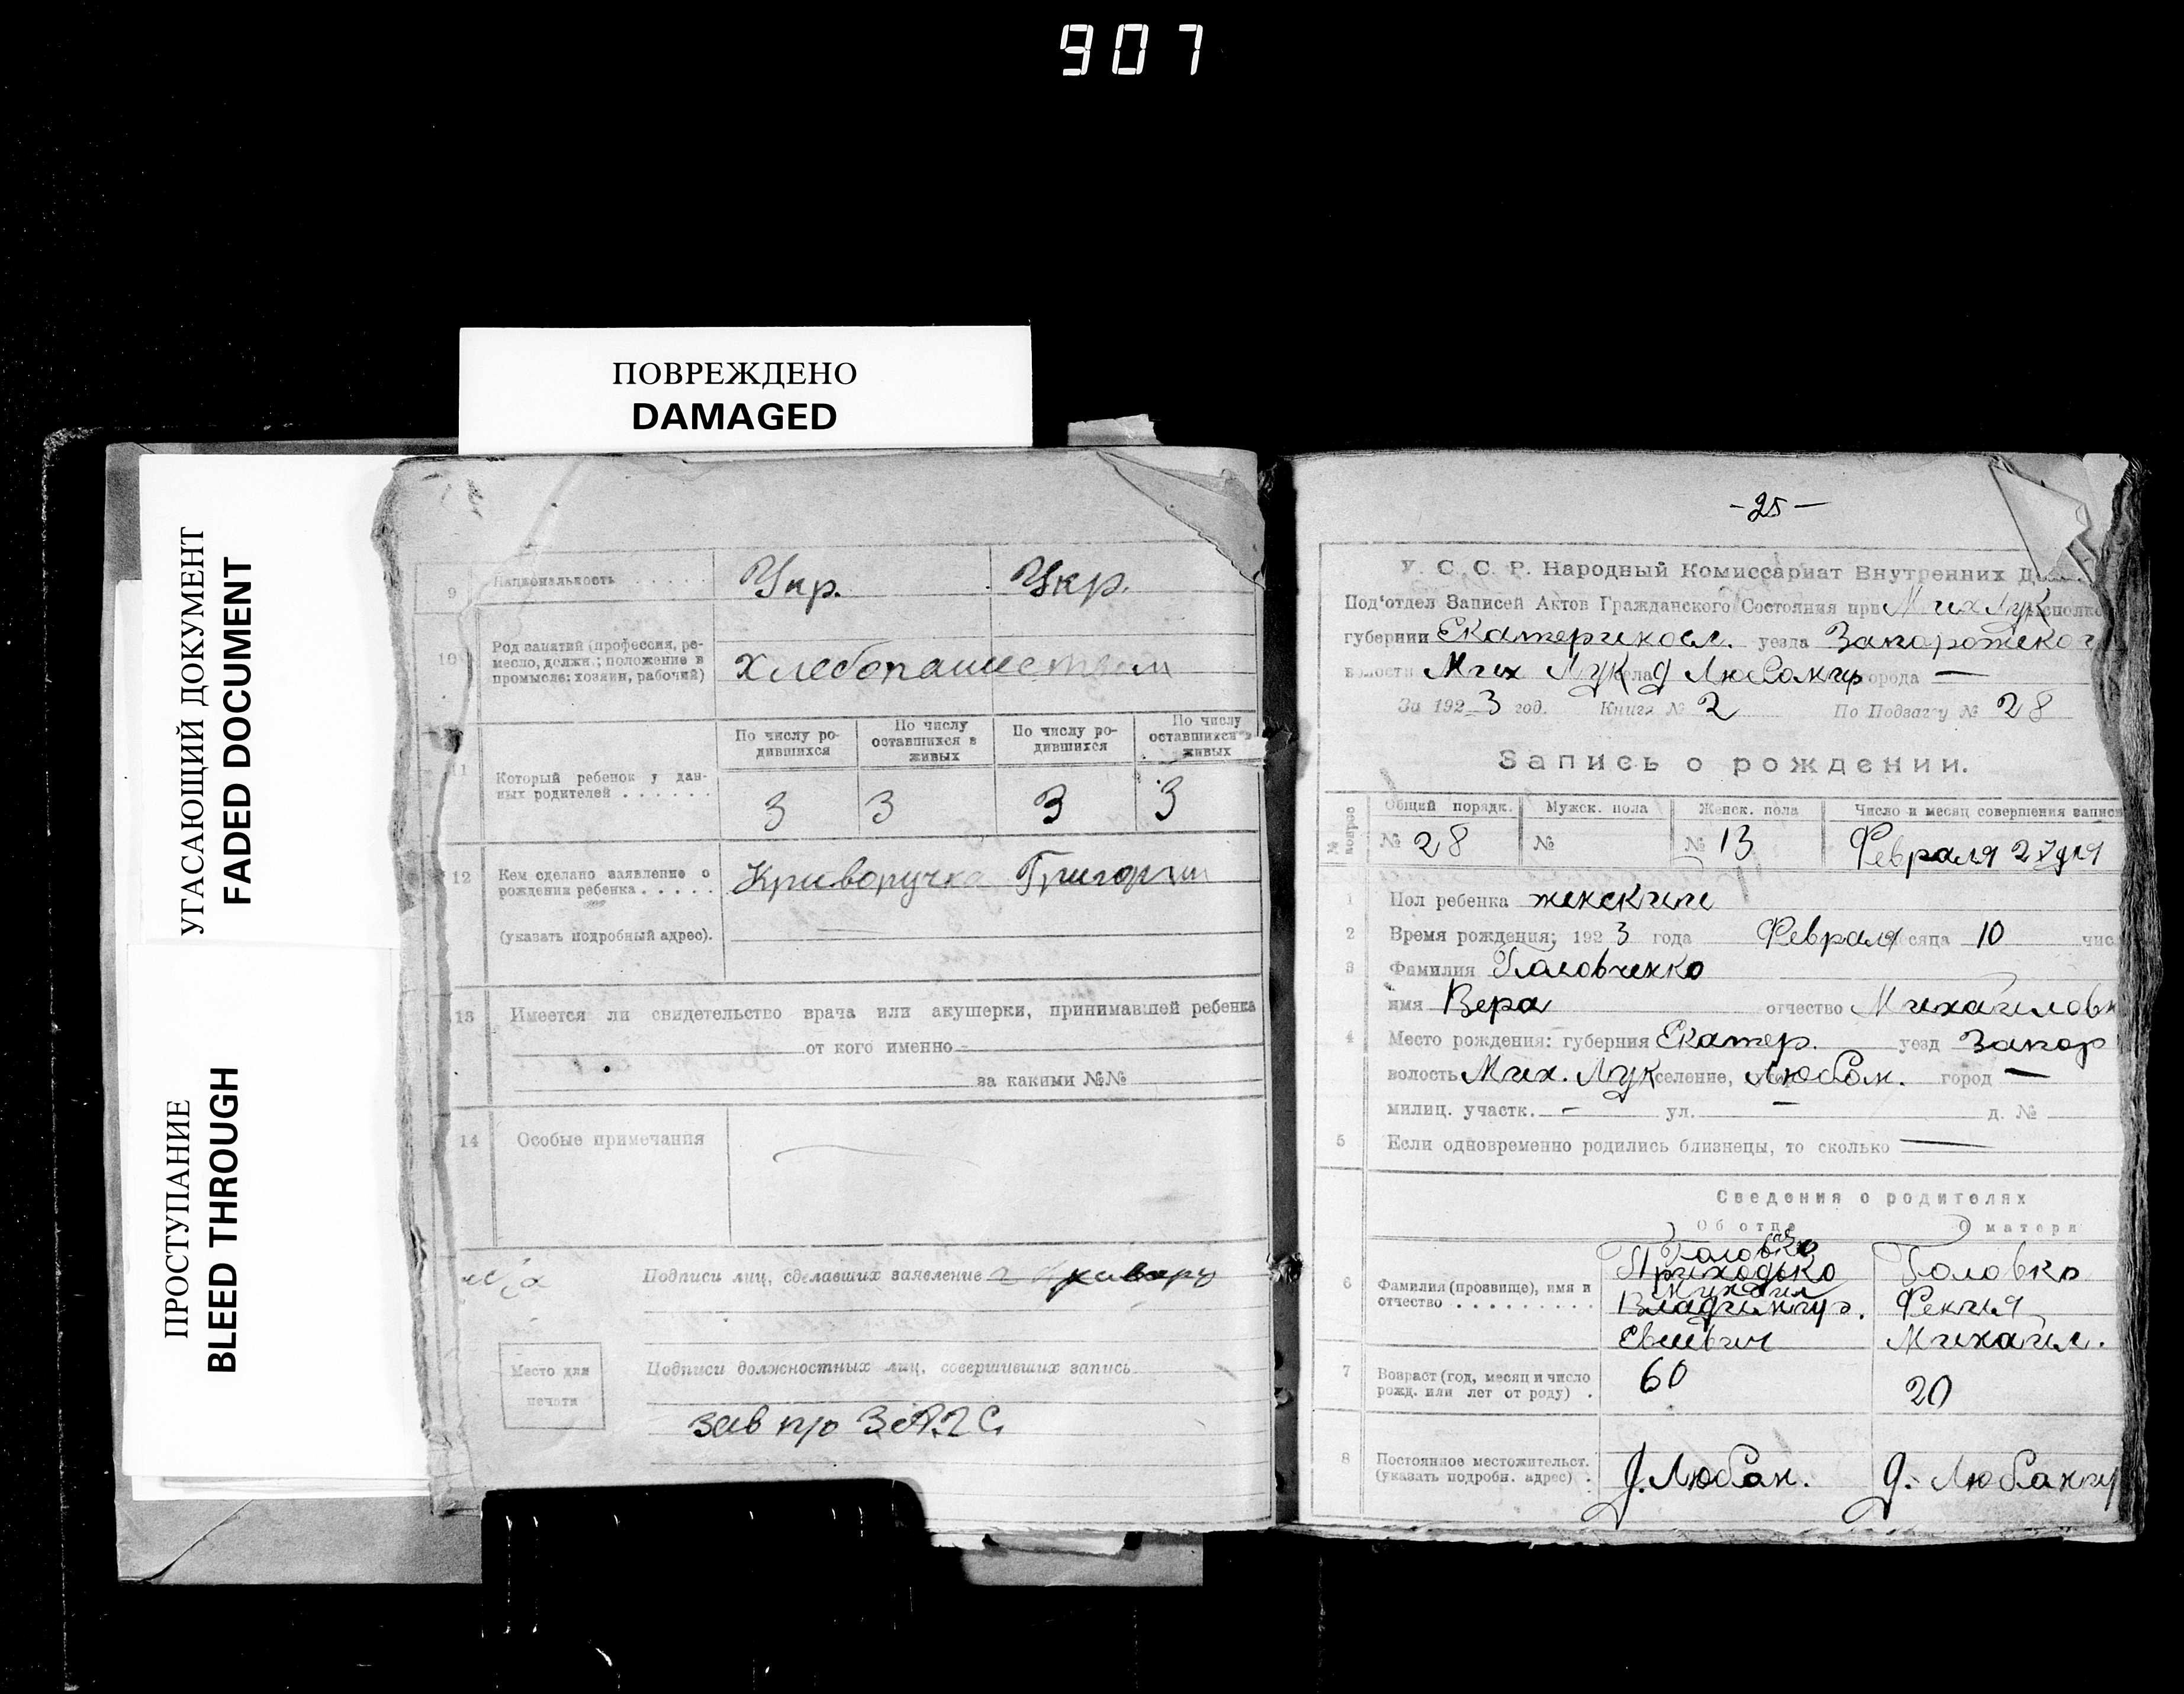 907
ПОВРЕЖДЕНО
DAMAGED
УГАСАЮЩИЙ ДОКУМЕНТ
FADED DOCUMENT
ПРОСТУПАНИЕ
BLEED THROUGH
9 Национальность . . . . . Укр. Укр.
10 Род занятий (профессия, ре-
месло, должн.; положение в
промысле: хозяин, рабочий)
хлебопашеством
По числу ро-
дившихся
По числу
оставшихся в
живых
По числу ро-
дившихся
По числу
оставшихся в
живых
11 Который ребенок у дан-
ных родителей . . . . . .
3 3 3 3
12 Кем сделано заявление о
рождении ребенка . . . . .
Криворучка Григорий
(указать подробный адрес).
13 Имеется ли свидетельство врача или акушерки, принимавшей ребенка
от кого именно
за какими №№
14 Особые примечания
Подписи лиц, сделавших заявление
Место для
печати
Подписи должностных лиц, совершивших запись
зав п/о ЗАГС
-25-
У. С. С. Р. Народный Комиссариат Внутренних
Под'отдел Записей Актов Гражданского Состояния при Мих Лук
губернии Екатериносл. уезда Запорожског
волости Мих Лук села д Любомир города —
За 1923 год. Книга № 2 По Подзагу № 28
Запись о рождении.
Общий порядк. Мужск. пола Женск. пола Число и месяц совершения записи
№ 28 № № 13 Февраля 27 дня
1 Пол ребенка женский
2 Время рождения; 1923 года Февраля месяца 10 чис
3 Фамилия Головченко
имя Вера отчество Михайловн
4 Место рождения: губерния Екатер. уезд Запор
волость Мих. Лук селение, Любом. город —
милиц. участк. — ул. — д. №
5 Если одновременно родились близнецы, то сколько —
Сведения о родителях
Об отце О матери
6 Фамилия (прозвище), имя и
отчество . . . . . . . . . .
Головко
Приходько
Михаил
Владимир.
Евсевич
Головко
Фекла
Михайл.
7 Возраст (год, месяц и число
рожд. или лет от роду) .
60 20
8 Постоянное местожительст.
(указать подробн. адрес) .
д. Любом. д. Любомир